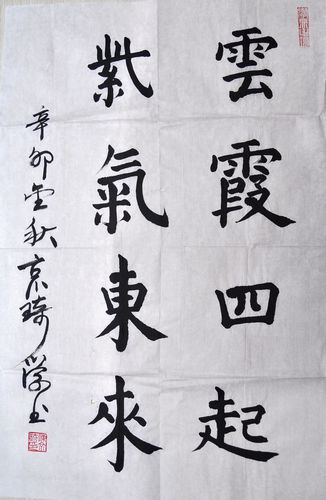 雲霞四起
紫氣東來
辛卯金秋京琦学书